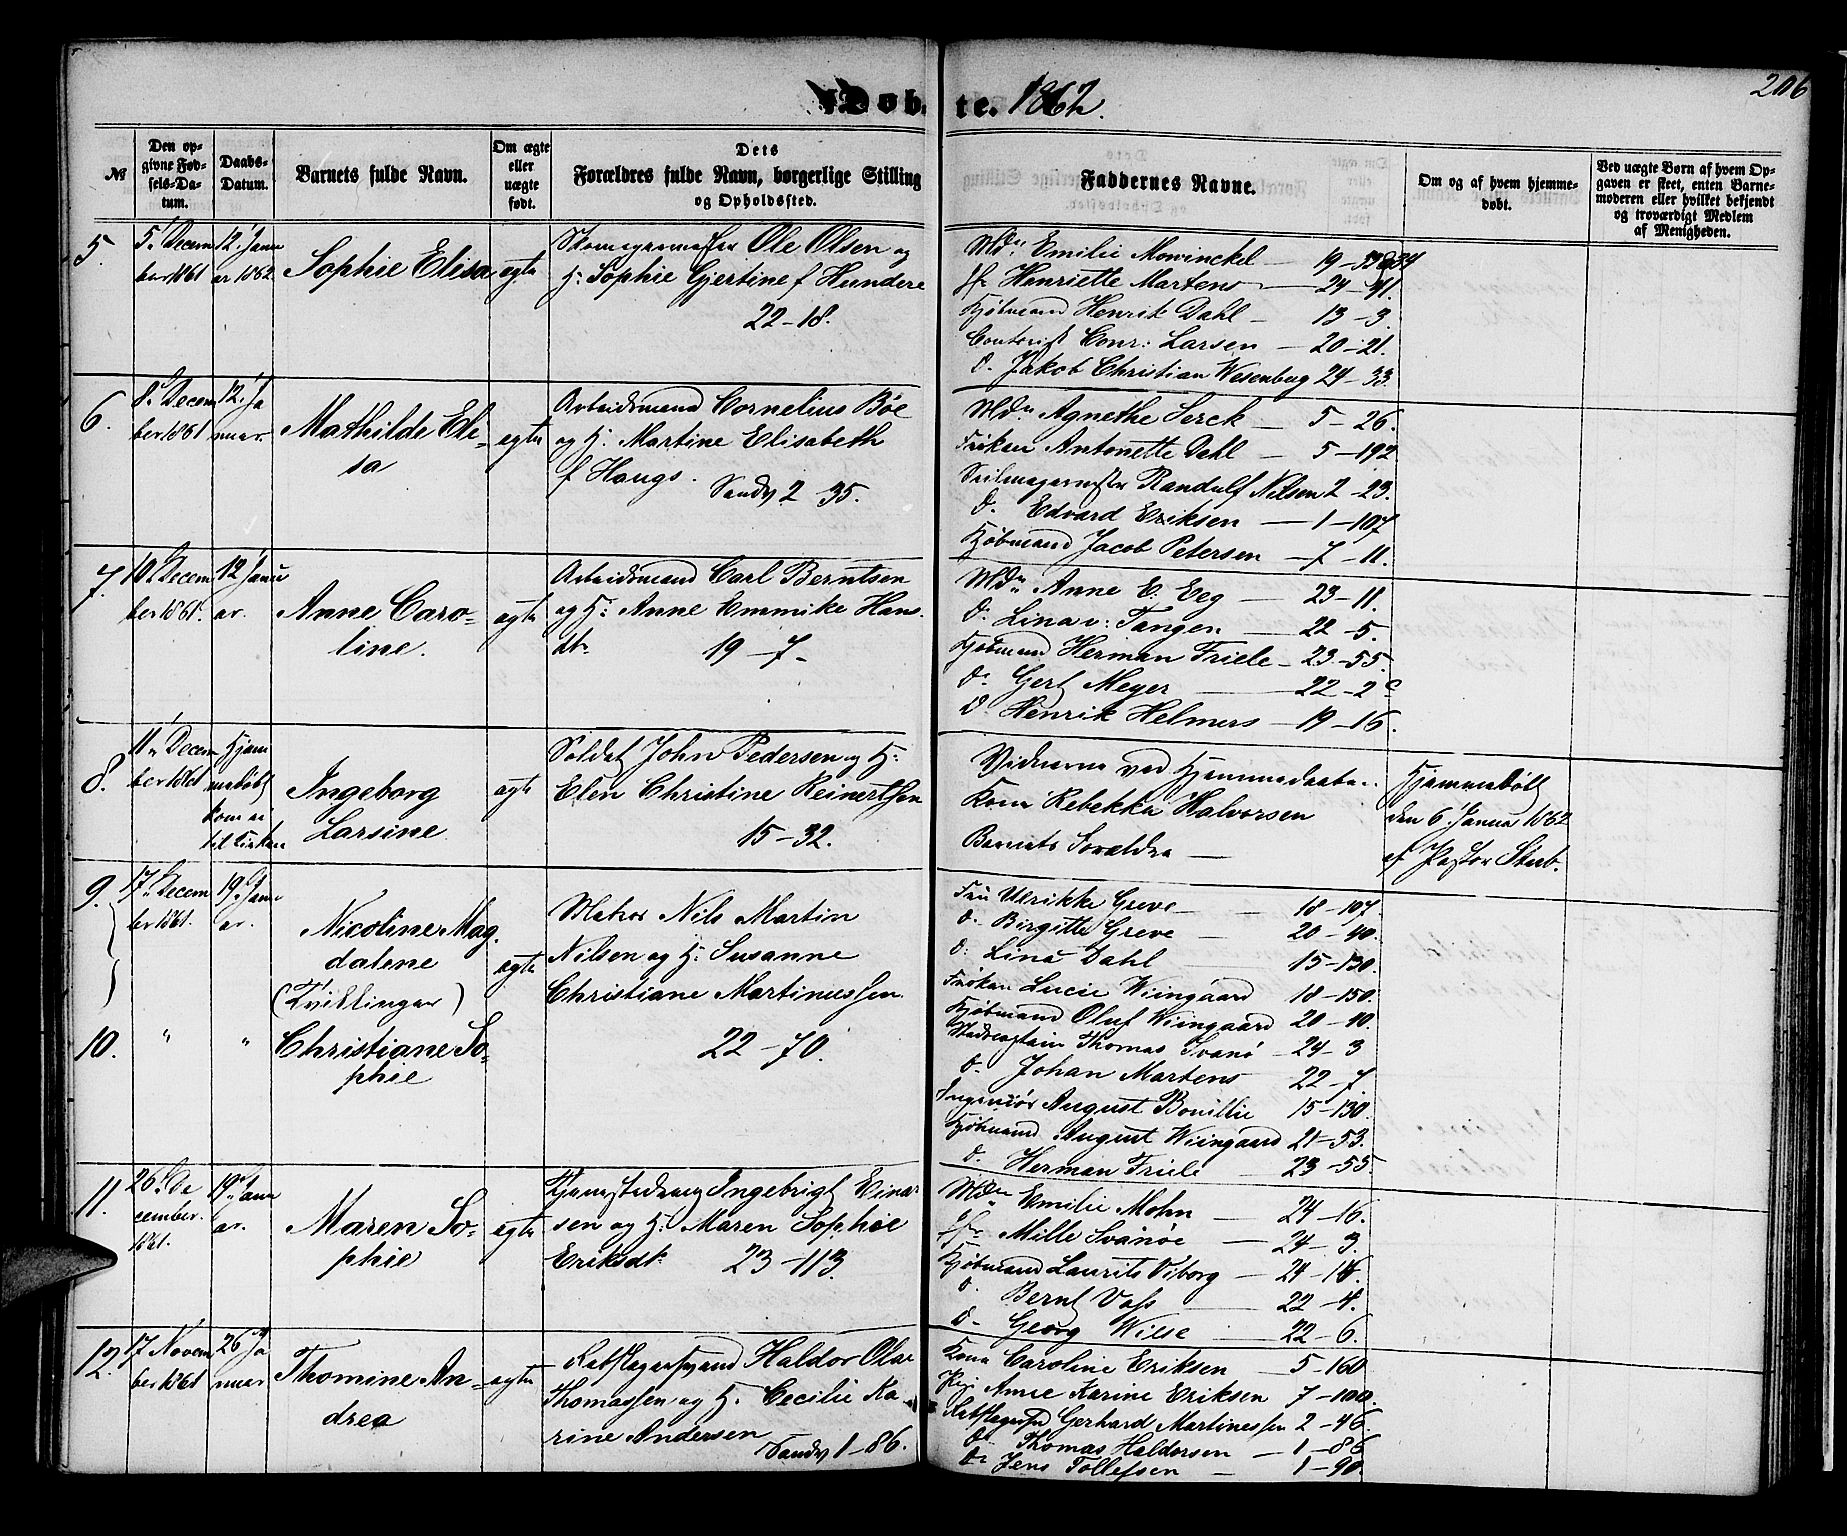 Døbte. 1862.
206
№
Den opgivne Fødsels-Datum.
Daabs-Datum.
Barnets fulde Navn.
Om ægte eller uægte født.
Dets Forældres fulde Navn, borgerlige Stilling og Opholdssted.
Faddernes Navne.
Om og af hvem hjemmedøbt.
Ved uægte Børn af hvem Opgaven er skeet, enten Barnemoderen eller hvilket bekjendt og troværdigt Medlem af Menigheden.
5.
5. Decem
ber 1861
12. Janu
ar 1862.
Sophie Elisa
ægte
Ole Olsen og
H. Sophie Gjertine f Hundere
22-18.
Mdm Emilie Mowinckel - 19
Jfr Henriette Martens - 24-41.
Kjøbmand Henrik Dahl - 13-3.
Contorist Conr: Larsen - 20-21.
D. Jakob Christian Wesenberg 24-33.
6.
8. Decem
ber 1861
12. Ja
nuar.
Mathilde Eli=
sa
ægte
Arbeidsmand Cornelius Bøe
og H. Martine Elisabeth
f Haugs. Sandv 2-35.
Mdm Agnethe Serck - 5-26.
Frøken Antonette Dahl - 5-192
Seilmagermester Randulf Nilsen 2-23.
D. Edvard Eriksen - 1-107
Kjøbmand Jacob Petersen - 7-11.
7.
10. Decem
ber 1861.
12. Janu
ar.
Anne Caro=
line.
ægte
Arbeidsmand Carl Berntsen
og H. Anne Emmike Hans
dtr 19-7-
Mdm Anne E. Eeg - 23-11.
D. Lina v: Tangen - 22-5.
Kjøbmand Herman Friele - 23-55.
D. Gert Meyer - 22-2c
D. Henrik Helmers - 19-16.
8.
11. Decem
ber 1861
Hjem
medøbt
kom ei
til Kirken
Ingeborg
Larsine
ægte
Soldat John Pedersen og H.
Elen Christine Reinertsen
15-32.
Vidnerne ved Hjemmedaaben
Kone Rebekka Halvorsen
Barnets Forældre -
Hjemmedøbt
den 6. Januar 1862
af Pastor Stub.
9.
17. Decem
ber 1861.
19. Janu
ar.
Nicoline Mag
dalene
(Tvillinger)
ægte
Matros Nils Martin
Nilsen og H. Susanne
Christiane Martinussen
22-70.
10.
"
"
Christiane So=
phie
Fru Ulrikke Greve - 18-107
D. Birgitte Greve - 20-40.
D. Lina Dahl - 15-130.
Frøken Lucie Wiingaard 18-150.
Kjøbmand Oluf Wiingaard 20-10.
Thomas Svanø - 24-3
D. Johan Martens - 22-7.
Ingeniør August Bouillie 15-130.
Kjøbmand August Wiingaard 21-53.
D. Herman Friele - 23-55.
11.
26. De
cember.
1861.
19. Janu
ar.
Maren So=
phie
ægte
Ingebrigt Einar
sen og H. Maren Sophie
Eriksdtr 23-113.
Mdm Emilie Mohn - 24-16.
Jfr Mille Svanøe - 24-3.
Kjøbmand Laurits Viborg - 24-14.
D. Bernt Voss - 22-4.
D. Georg Wilse - 22-6.
12.
17. Novem
ber 1861
26. Ja
nuar
Thomine An=
drea
ægte
Rebslagersvend Haldor Olai
Thomassen og H. Cecilie Ka=
rine Andersen
Sandv 1-86.
Kone Caroline Eriksen - 5-160
Pige Anne Karine Eriksen 7-100.
Rebslagersvd Gerhard Martinessen 2-46
D. Thomas Haldorsen - 1-86
D. Jens Tollefsen - 1-90.